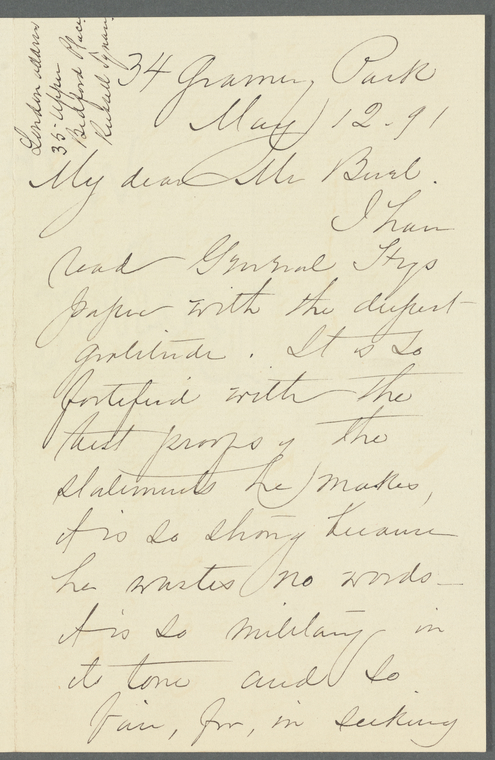 London address
35 Upper
Bedford Place
Russell Square
34 Gramercy Park
May 12. 91
My dear Mr Buel.
I have
read General Frys
paper with the deepest
gratitude. It is so
fortified with the
best proofs of the
statements he makes,
it is so strong because
he wastes no words -
it is so military in
its tone and so
fair, for, in seeking